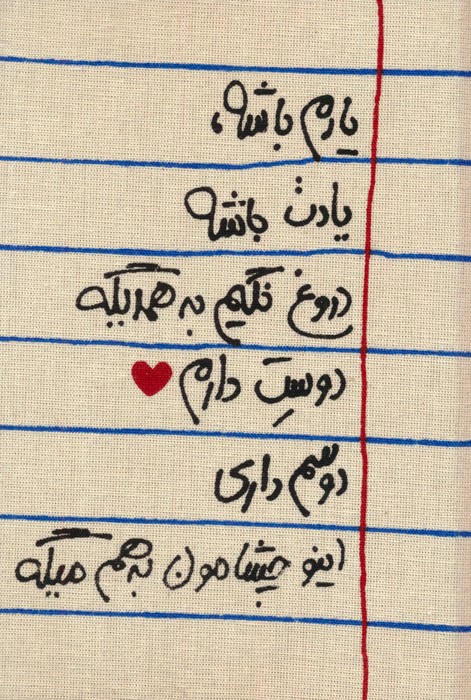 یارم باشه،
یادت باشه
دروغ نگیم به همدیگه
دوستِ دارم
دوسم داری
اینو چشامون بهم میگه